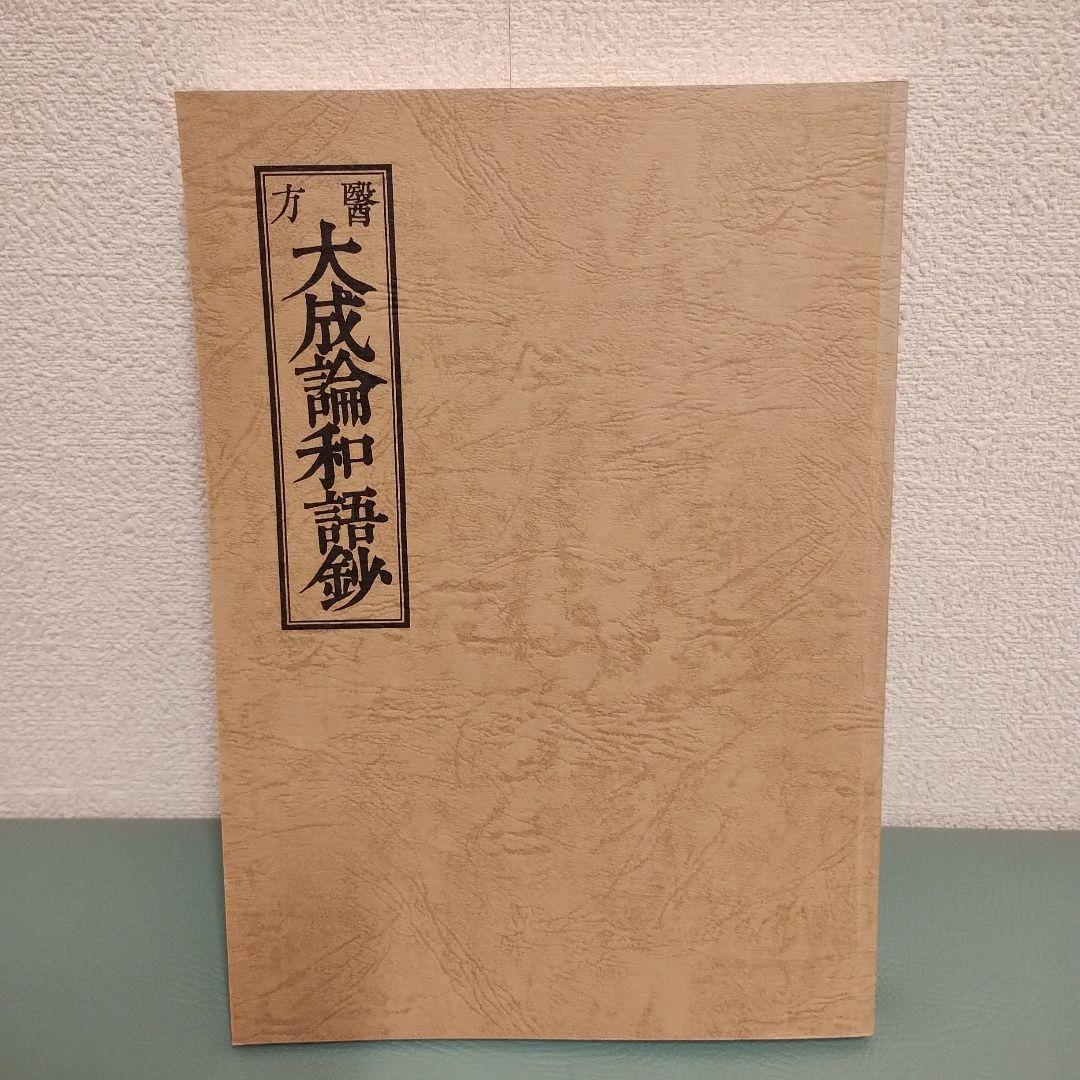 醫方
大成論和語鈔